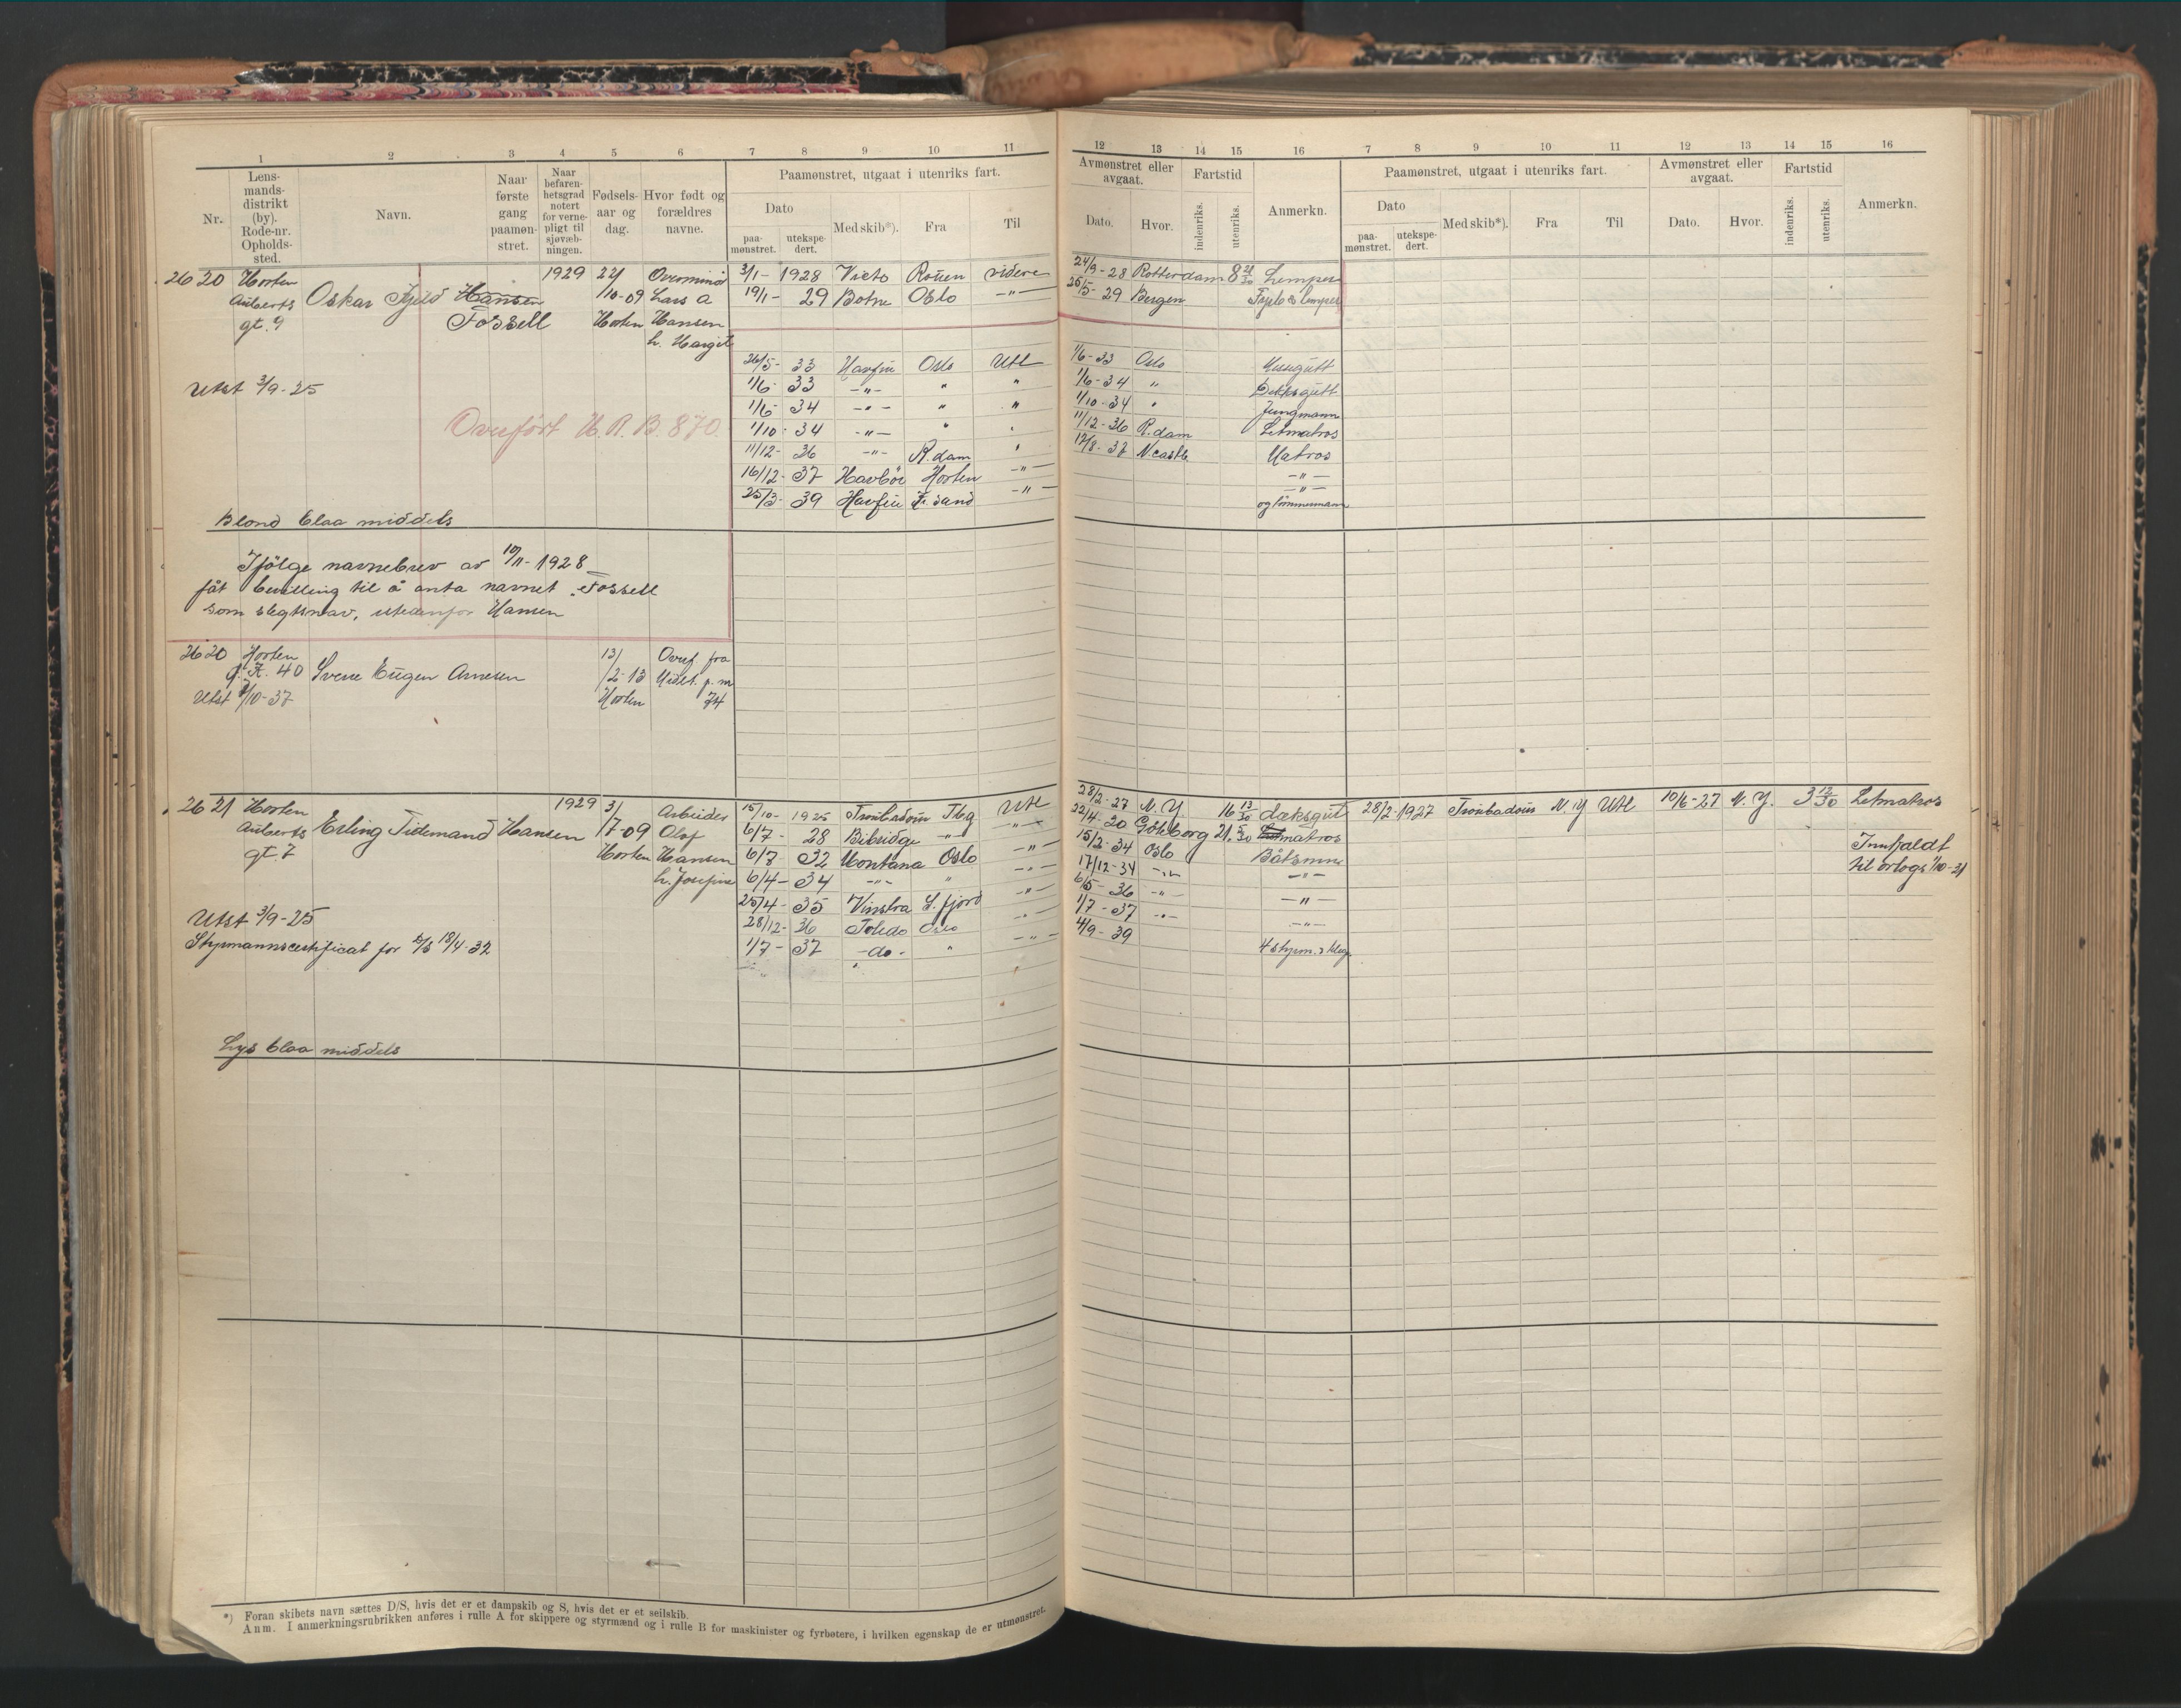 1 2 3 4 5 6 7 8 9 10 11
Nr.
Lens-
mands-
distrikt
(by).
Rode-nr.
Opholds-
sted.
Navn.
Naar
første
gang
paamøn-
stret.
Naar
befaren-
hetsgrad
notert
for verne-
pligt til
sjøvæb-
ningen.
Fødsels-
aar og
dag.
Hvor født og
forældres
navne.
Paamønstret, utgaat i utenriks fart.
Dato
paa-
mønstret.
utekspe-
dert.
Med skib*).
Fra
Til
12 13 14 15 16 7 8 9 10 11 12 13 14 15 16
Avmønstret eller
avgaat.
Dato.
Hvor.
Fartstid
indenriks.
utenriks.
Anmerkn.
Paamønstret, utgaat i utenriks fart.
Dato
paa-
mønstret.
utekspe-
dert.
Med skib*).
Fra
Til
Avmønstret eller
avgaat.
Dato.
Hvor.
Fartstid
indenriks.
utenriks.
Anmerkn.
2620 Horten
Auberts
gt. 9
Oskar Fjeld Hansen
Fossell
1929
22/
10-09
Horten
Lars A
Hansen
h. Margit
Utst 3/9-25
Overført H.R.B. 870
Blond blaa middels
3/1- 1928 Victo Rouen videre 24/9-28 Rotterdam 8 21/30 Lemper
19/1- 29 Botne Oslo -"- 25/5-29 Bergen
26/5- 33 Havfru Oslo Utl 1/6-33 Oslo Messegutt
1/6- 33 -"- " " 1/6-34 " Dekksgutt
1/6- 34 -"- " " 1/10-34 " Jungmann
1/10- 34 -"- " " 11/12-36 R.dam Letmatros
11/12- 36 -"- R.dam " 17/8-37 N.castle Matros
16/12- 37 Havbör Horten -"- -"-
25/3- 39 Havfru Fr.sand -"- -"-
og tömmermann
Ifölge navnebrev av 10/11-1928
fåt bevilling til å anta navnet "Fossell
som slegtsnav, istedenfor Hansen
2620 Horten
40
Utst /10-37
Sverre Eugen Arnesen
13/
2-13
Horten
Overf fra
Midlt. p. m
74
2621 Horten
Auberts
gt. 7
Erling Tidemand Hansen
1929
3/
7-09
Horten
Arbeider
Olaf
Hansen
h. Josefine
Utst 3/9-25
Styrmannscertificat for D/S 18/4-32
Lys blaa middels
15/10- 1925 Troubadour Tbg Utl 28/2-27 N.Y. 16 13/30 dæksgut
6/7- 28 Bibridge -"- -"- 22/4-30 Göteborg 21 5/30 matros
6/7 32 Montana Oslo -"- 15/2-34 Oslo Båtsmnn
6/4- 34 -"- " -"- 17/12-34 -"- -"-
25/4- 35 Vinstra S.fjord -"- 6/5-36 -"- -"-
28/12- 36 Toledo Oslo -"- 1/7-37 -"- -"-
1/7- 37 -do- " -"- 4/9-39 4 styrm.
28/2-1927 Troubadour N.Y Utl 10/6-27 N.Y. 3 12/30 Letmatros
Innkaldt
til orlogs 1/10-31
*) Foran skibets navn sættes D/S, hvis det er et dampskib og S, hvis det er et seilskib.
Anm. I anmerkningsrubrikken anføres i rulle A for skippere og styrmænd og i rulle B for maskinister og fyrbøtere, i hvilken egenskap de er utmønstret.